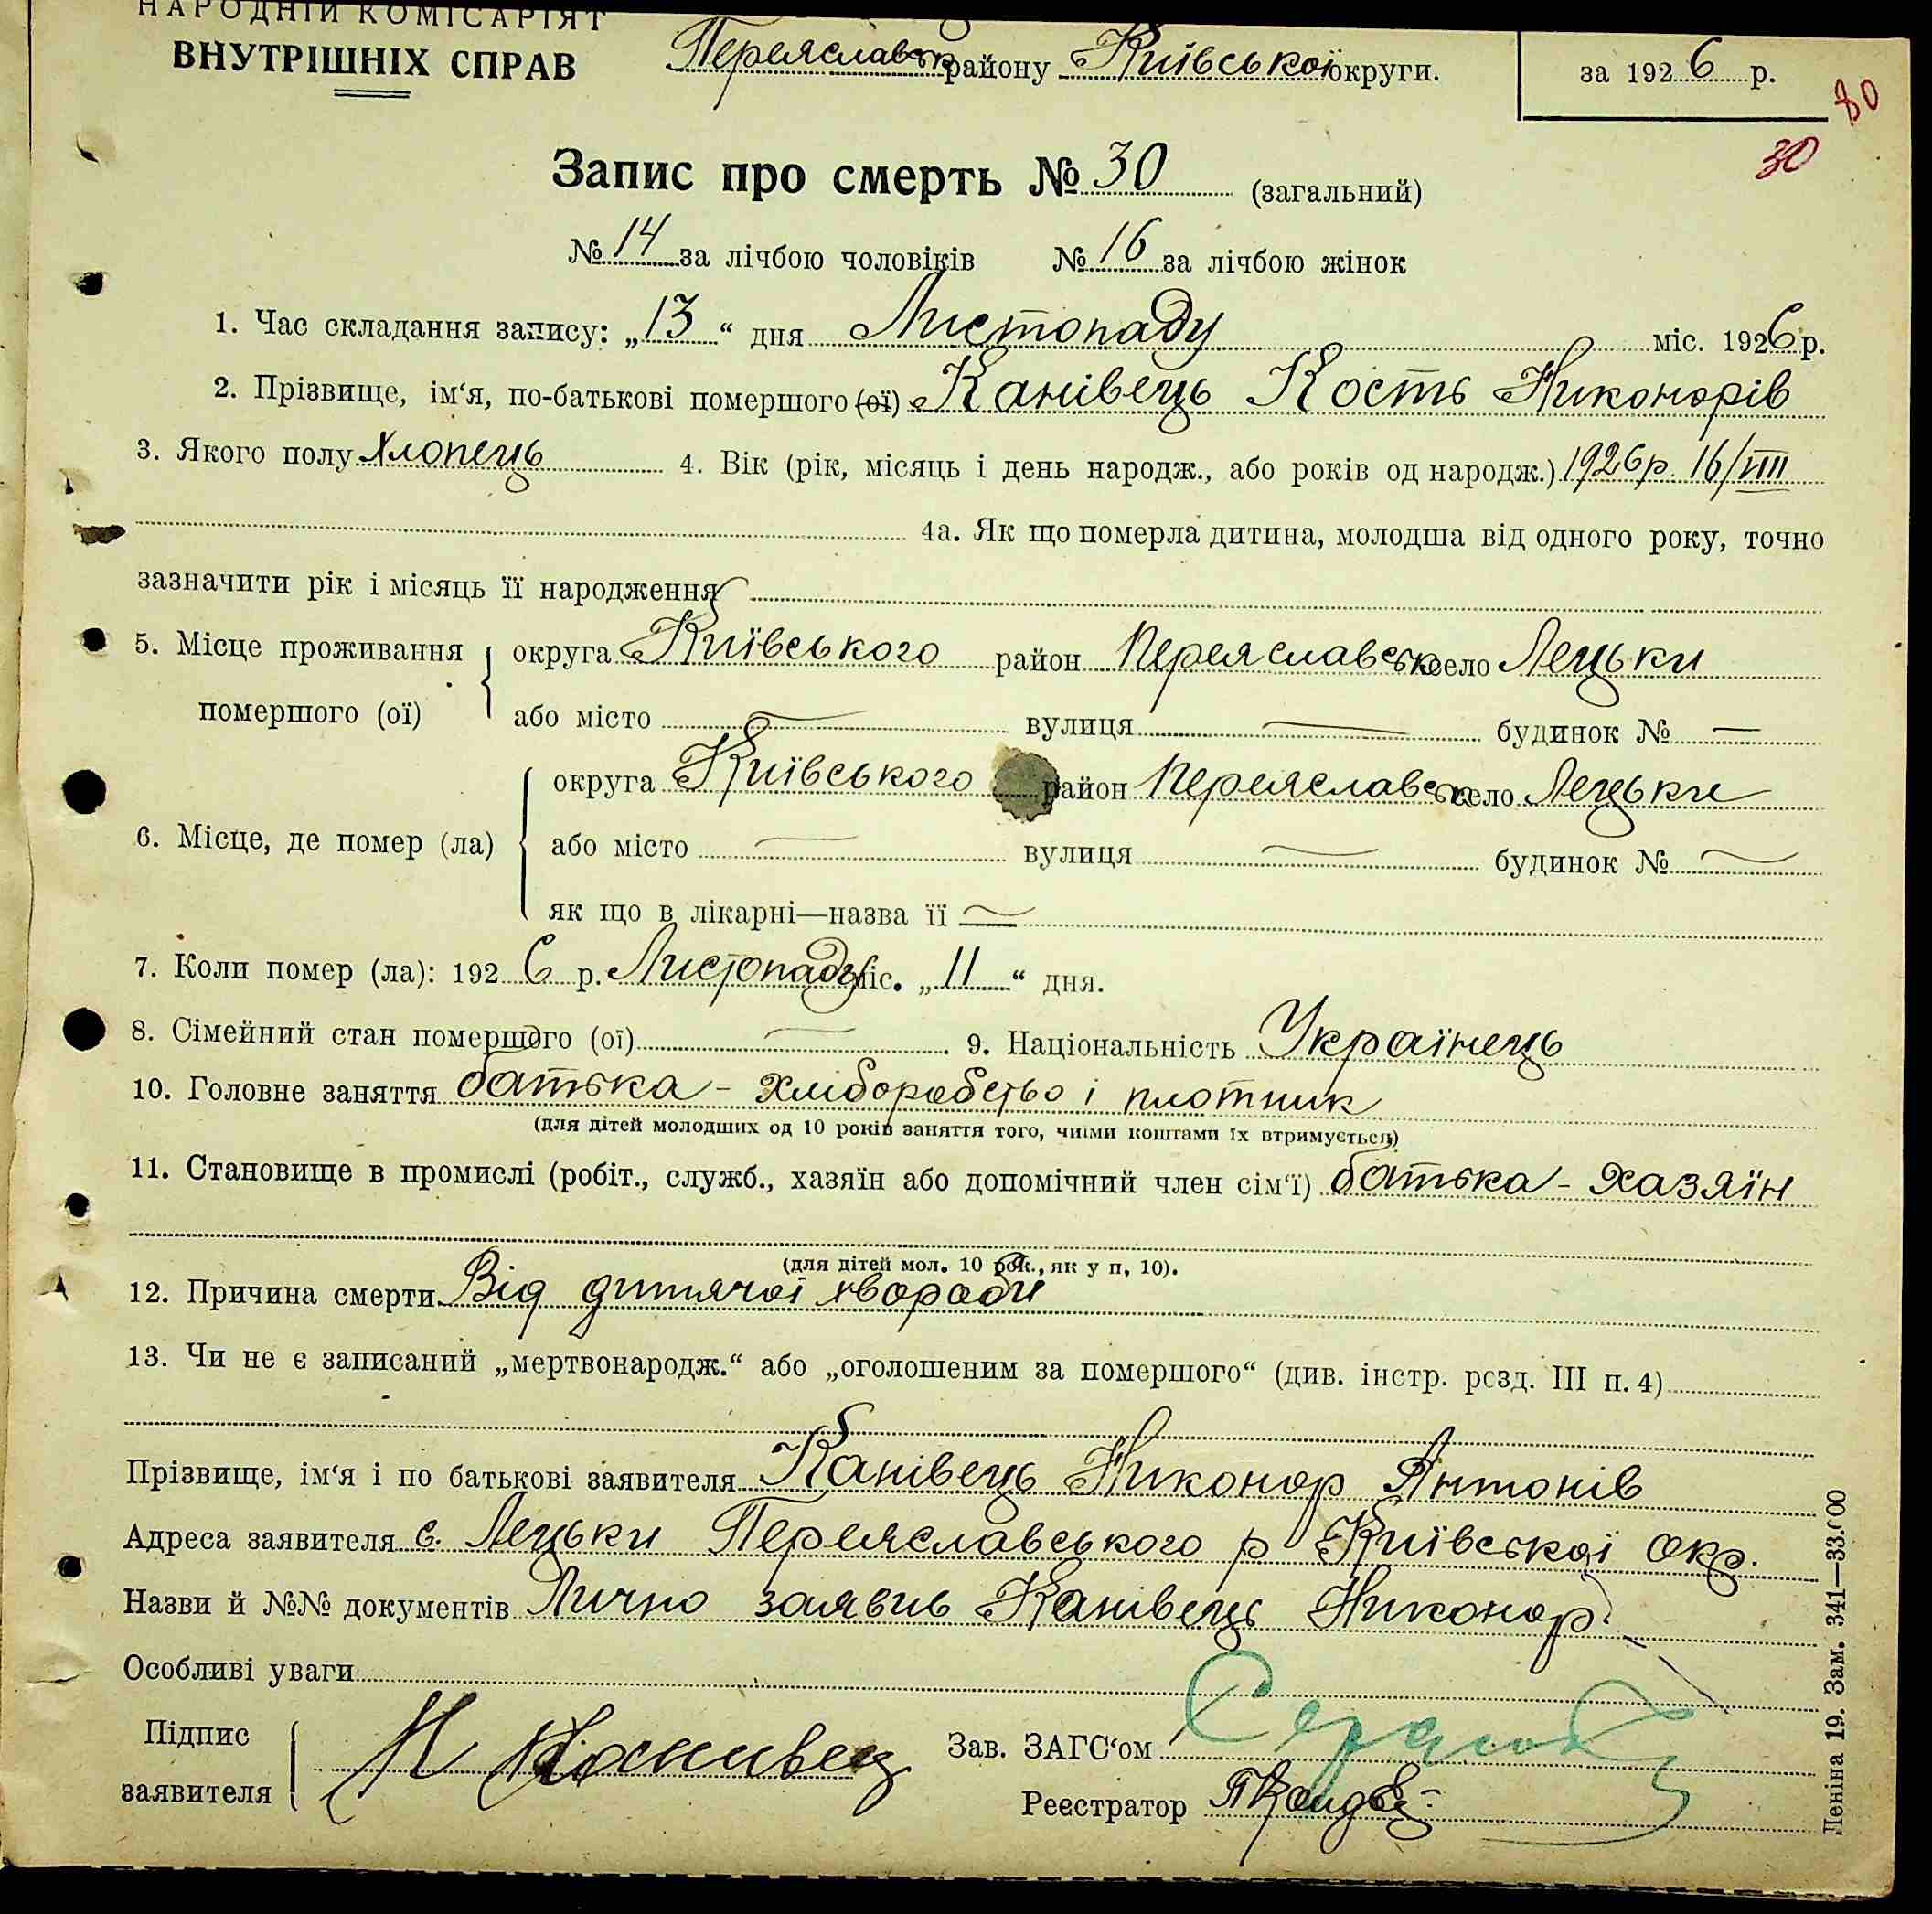 НАРОДНІЙ КОМІСАРІЯТ
ВНУТРІШНІХ СПРАВ
Переяславськ району Київської округи.
за 1926 р.
80
30
Запис про смерть № 30 (загальний)
№ 14 за лічбою чоловіків № 16 за лічбою жінок
1. Час складання запису: „13“ дня Листопаду міс. 1926 р.
2. Прізвище, ім‘я, по-батькові помершого (ої) Канівець Кость Никонорів
3. Якого полу Хлопець 4. Вік (рік, місяць і день народж., або років од народж.) 1926р. 16/VIII
4а. Як що померла дитина, молодша від одного року, точно
зазначити рік і місяць її народження
5. Місце проживання помершого (ої) округа Київського район Переяславськ село Лецьки
або місто — вулиця — будинок № —
6. Місце, де помер (ла) округа Київського район Переяславськ село Лецьки
або місто — вулиця — будинок № —
як що в лікарні—назва її —
7. Коли помер (ла): 1926 р. Листопаду міс. „11“ дня.
8. Сімейний стан помершого (ої) — 9. Національність Українець
10. Головне заняття батька - хліборобство і плотник
(для дітей молодших од 10 років заняття того, чиїми коштами їх втримується)
11. Становище в промислі (робіт., служб., хазяїн або допомічний член сім‘ї) батька - хазяїн
(для дітей мол. 10 рок., як у п. 10).
12. Причина смерти Від дитячої хвороби
13. Чи не є записаний „мертвонародж.“ або „оголошеним за помершого“ (див. інстр. розд. III п. 4)
Прізвище, ім‘я і по батькові заявителя Канівець Никонор Антонів
Адреса заявителя с. Лецьки Переяславського р Київської окр.
Назви й №№ документів Лично заявив Канівець Никонор
Особливі уваги
Підпис заявителя Н Канивец
Зав. ЗАГС‘ом
Реєстратор
Леніна 19. Зам. 341—33.000